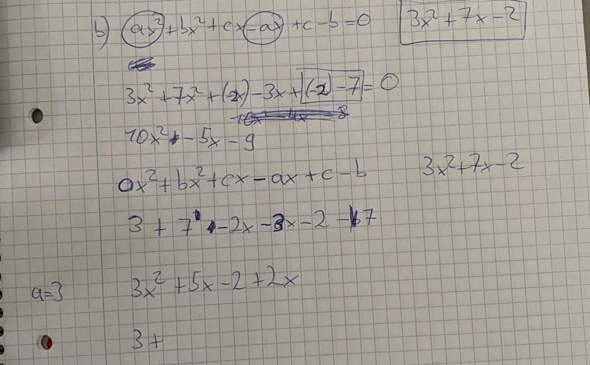 b) ax²+bx²+cx-ax+c-b=0 3x²+7x-2
3x²+7x²+(-2x)-3x+(-2)-7=0
10x²-5x-9
ax²+bx²+cx-ax+c-b 3x²+7x-2
3+7-2x-3x-2-7
a=3 3x²+5x-2+2x
3+